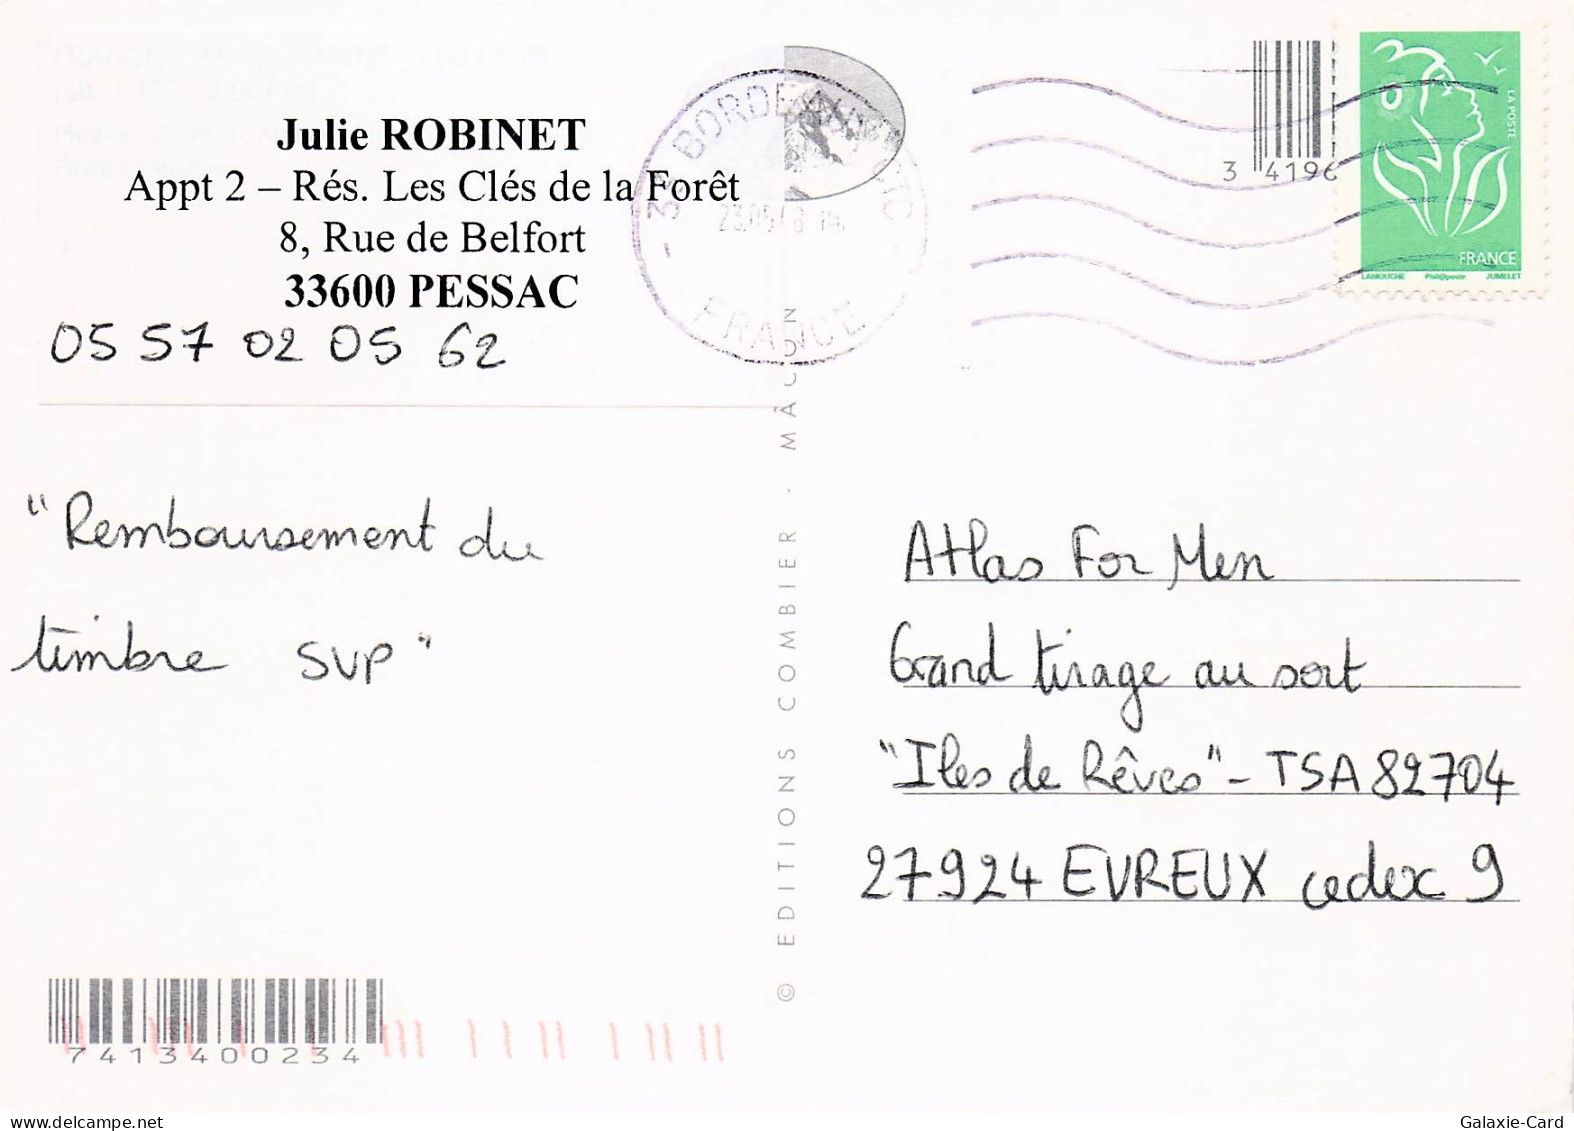 Julie ROBINET
Appt 2 – Rés. Les Clés de la Forêt
8, Rue de Belfort
33600 PESSAC
05 57 02 05 62
FRANCE
3 4196
LA POSTE
FRANCE
LAMOUCHE Phil@poste JUMELET
"Remboursement du
timbre SVP"
© EDITIONS COMBIER - MÂCON
Atlas For Men
Grand tirage au sort
"Iles de Rêves" - TSA 82704
27924 EVREUX cedex 9
7413400234
delcampe.net
Galaxie-Card